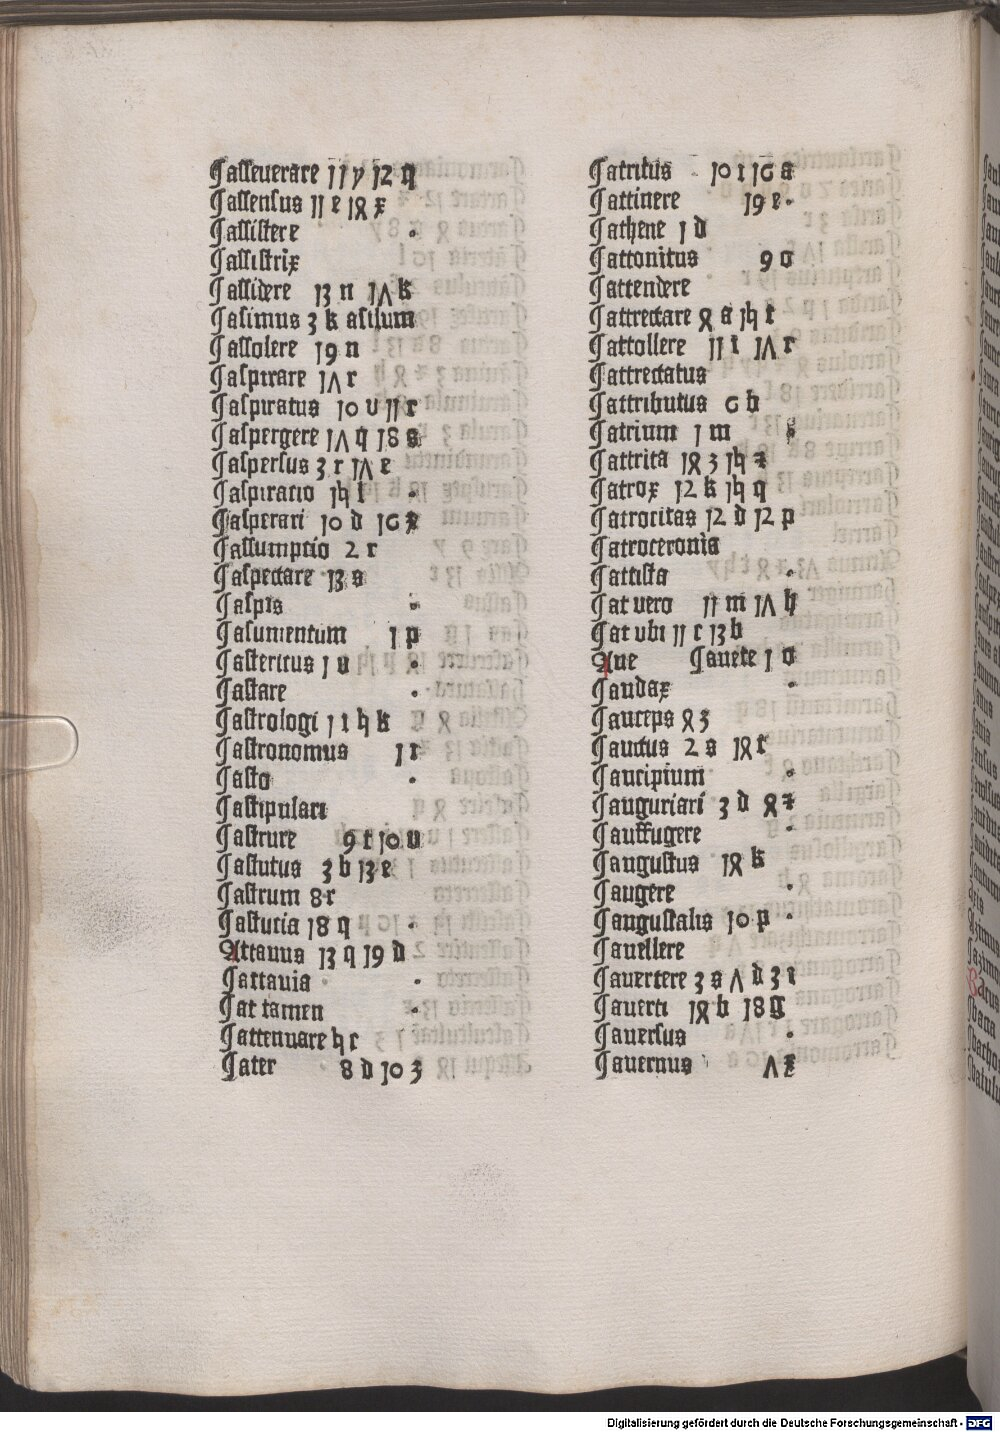 ¶asseuerare 11 y 12 q
¶assensus 11 e 14 x
¶assistere .
¶assistrix
¶assidere 13 n 17 k
¶asimus 3 k asilum
¶assolere 19 n
¶aspirare 17 r
¶aspiratus 10 v 11 r
¶aspergere 17 q 18 s
¶aspersus 3 r 17 e
¶aspiratio 15 t .
¶asperari 10 d 16 x
¶assumptio 2 r
¶aspectare 13 s
¶aspis .
¶asumentum 1 p
¶astericus 1 u .
¶astare .
¶astrologi 1 t 5 k
¶astronomus 1 r
¶asto .
¶astipulari
¶astrure 9 t 10 u
¶astutus 3 b 13 e
¶astrum 8 r
¶asturia 18 q .
Attauus 13 q 19 d
¶attauia .
¶at tamen .
¶attenuare 5 r
¶ater 8 d 10 3
¶atritus 10 t 16 a
¶attinere 19 e .
¶athene 1 d
¶attonitus 9 o
¶attendere
¶attrectare 4 a 15 t
¶attollere 11 t 17 r
¶attrectatus
¶attributus 6 h
¶atrium 1 m
¶attrita 14 3 15 z
¶atrox 12 k 15 q
¶atrocitas 12 d 12 p
¶atroceronia
¶attista .
¶at vero 11 m 17 h
¶at vbi 11 c 13 b
Aue ¶auete 1 o
¶audax .
¶auceps 4 3
¶auctus 2 s 14 r
¶aucipium .
¶auguriari 3 d 4 z
¶auffugere .
¶augustus 14 k
¶augere .
¶augustalis 10 p .
¶auellere
¶auertere 3 s 7 d 3 t
¶auerti 14 h 18 g
¶auersus .
¶auernus 7 x
Digitalisierung gefördert durch die Deutsche Forschungsgemeinschaft - DFG